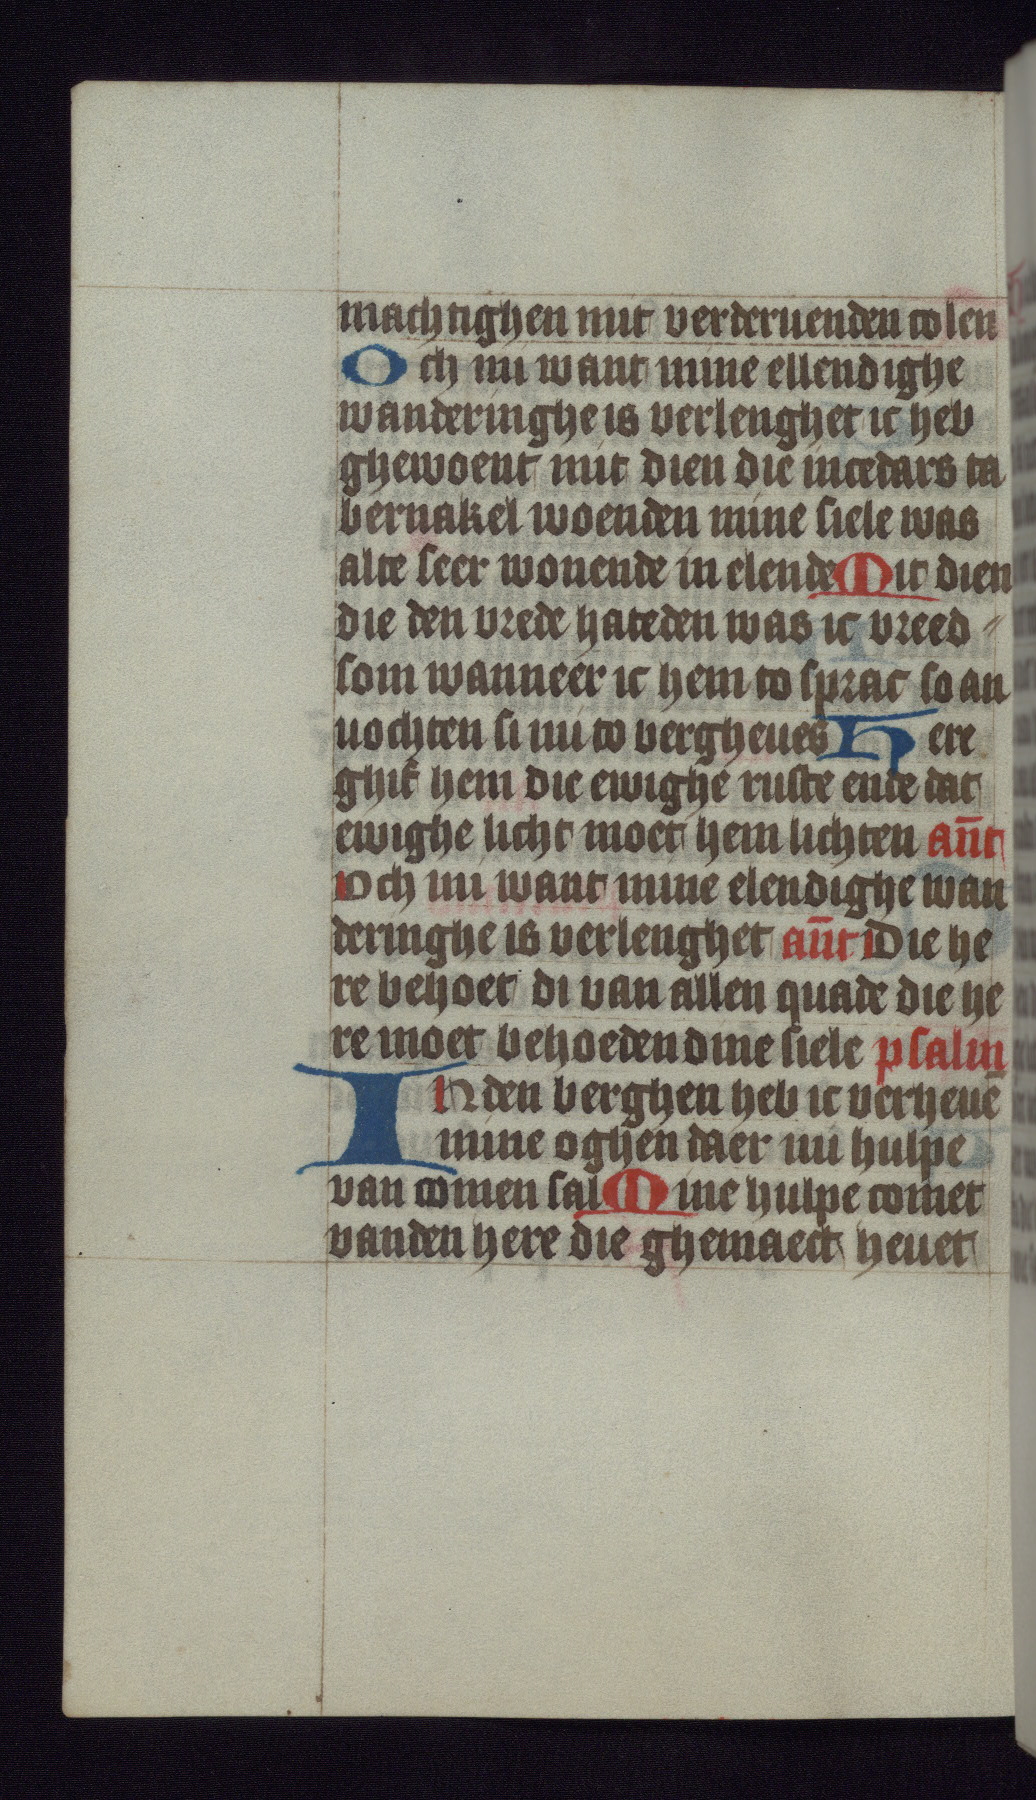 machtighen mit verderuenden colen
Och mi want mine ellendighe
wanderinghe is verlenghet ic heb
ghewoent mit dien die in cedars ta
bernakel woenden mine siele was
alte seer wonende in elende Mit dien
die den vrede hateden was ic vreed
som wanneer ic hem to sprac so an
uochten si mi to vergheues Here
ghif hem die ewighe ruste ende dat
ewighe licht moet hem lichten an̄t
Och mi want mine elendighe wan
deringhe is verlenghet an̄t Die he
re behoet di van allen quade die he
re moet behoeden dine siele psalm
In den berghen heb ic verheuē
mine oghen daer mi hulpe
van comen sal Mine hulpe comet
vanden here die ghemaect heuet